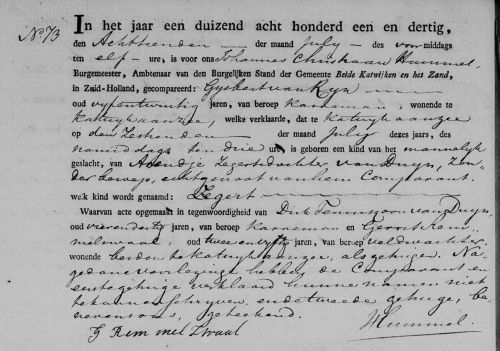 No. 73
In het jaar een duizend acht honderd een en dertig,
den Achttienden der maand July des voormiddags
ten elf ure, is voor ons Johannes Christiaan Hummel
Burgemeester, Ambtenaar van den Burgelijken Stand der Gemeente Beide Katwijken en het Zand,
in Zuid-Holland, gecompareerd: Gysbert van Ryn
oud vyfentwintig jaren, van beroep Karreman, wonende te
Katwyk aan zee, welke verklaarde, dat te Katwyk aan zee
op den Zestienden der maand July dezes jaars, des
namiddags ten drie ure, is geboren een kind van het mannelyk
geslacht, van Arendje Zegertsdochter van Duyn, Zon-
der beroep, echtgenoot van hem Comparant.
welk kind wordt genaamd: Zegert
Waarvan acte opgemaakt in tegenwoordigheid van Dirk Teuniszoon van Duyn,
oud vierendertig jaren, van beroep Karreman en Gerrit Rem
melzwaal, oud twee en vyftig jaren, van beroep veldwachter,
wonende beiden te Katwyk aan zee, als getuigen. Na
gedane voorlezinge hebben de Comparant en
eerste getuige verklaard hunne namen niet
te kunnen schryven, en de tweede getuige, be-
nevens ons, geteekend.
G Rem mel Zwaal
Hummel.